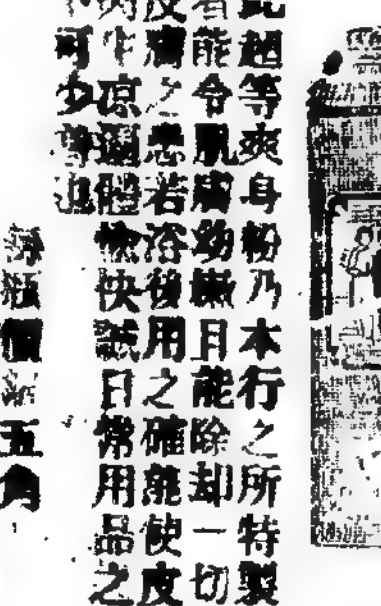 此超等爽身粉乃本行之所特製
者能令肌膚幼嫩且能除却一切
皮膚之患若浴後用之確能使皮
肉生凉遍體愉快誠日常用品之
不可少者也
每瓶價銀五角